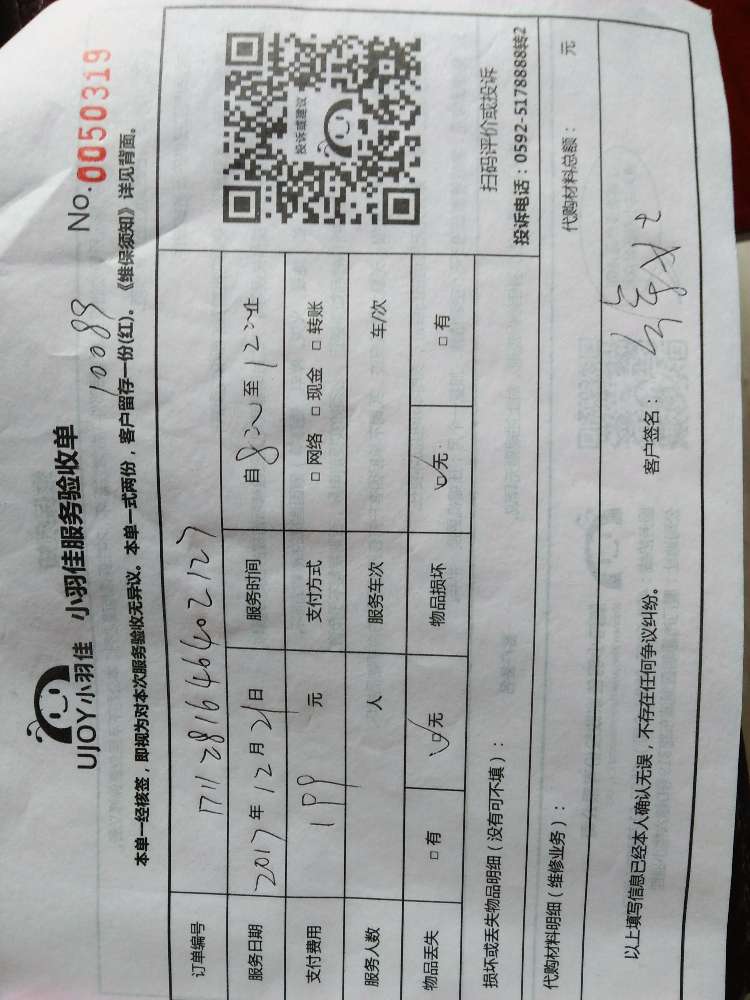 UJOY小羽佳 小羽佳服务验收单
No.0050319
10089
本单一经核签，即视为对本次服务验收无异议。本单一式两份，客户留存一份(红)。《维保须知》详见背面。
订单编号 1711281646402127
服务日期 2017年12月21日 服务时间 自8:00至12:00止
支付费用 199 元 支付方式 □网络 □现金 □转账
服务人数 人 服务车次 车/次
物品丢失 □有 ☑无 物品损坏 ☑无 □有
投诉或建议
扫码评价或投诉
投诉电话：0592-5178888转2
损坏或丢失物品明细（没有可不填）：
代购材料明细（维修业务）： 代购材料总额： 元
以上填写信息已经本人确认无误，不存在任何争议纠纷。 客户签名：